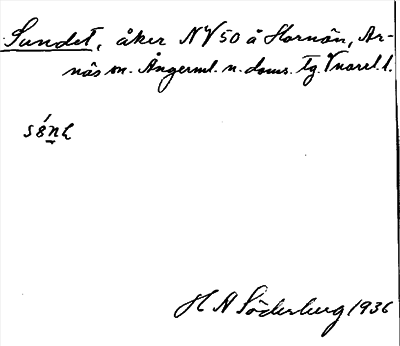 Sundet, åker NV 50 å Hornön, Ar-
näs sn. Ångerml. n. doms. Tg.
H A Söderberg 1936